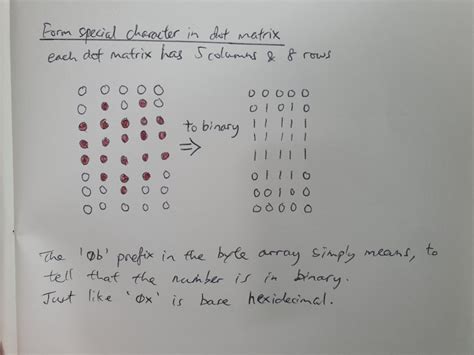 Form special character in dot matrix
each dot matrix has 5 columns & 8 rows
to binary
0 0 0 0 0
0 1 0 1 0
1 1 1 1 1
1 1 1 1 1
1 1 1 1 1
0 1 1 1 0
0 0 1 0 0
0 0 0 0 0
The '0b' prefix in the byte array simply means, to
tell that the number is in binary.
Just like '0x' is base hexidecimal.